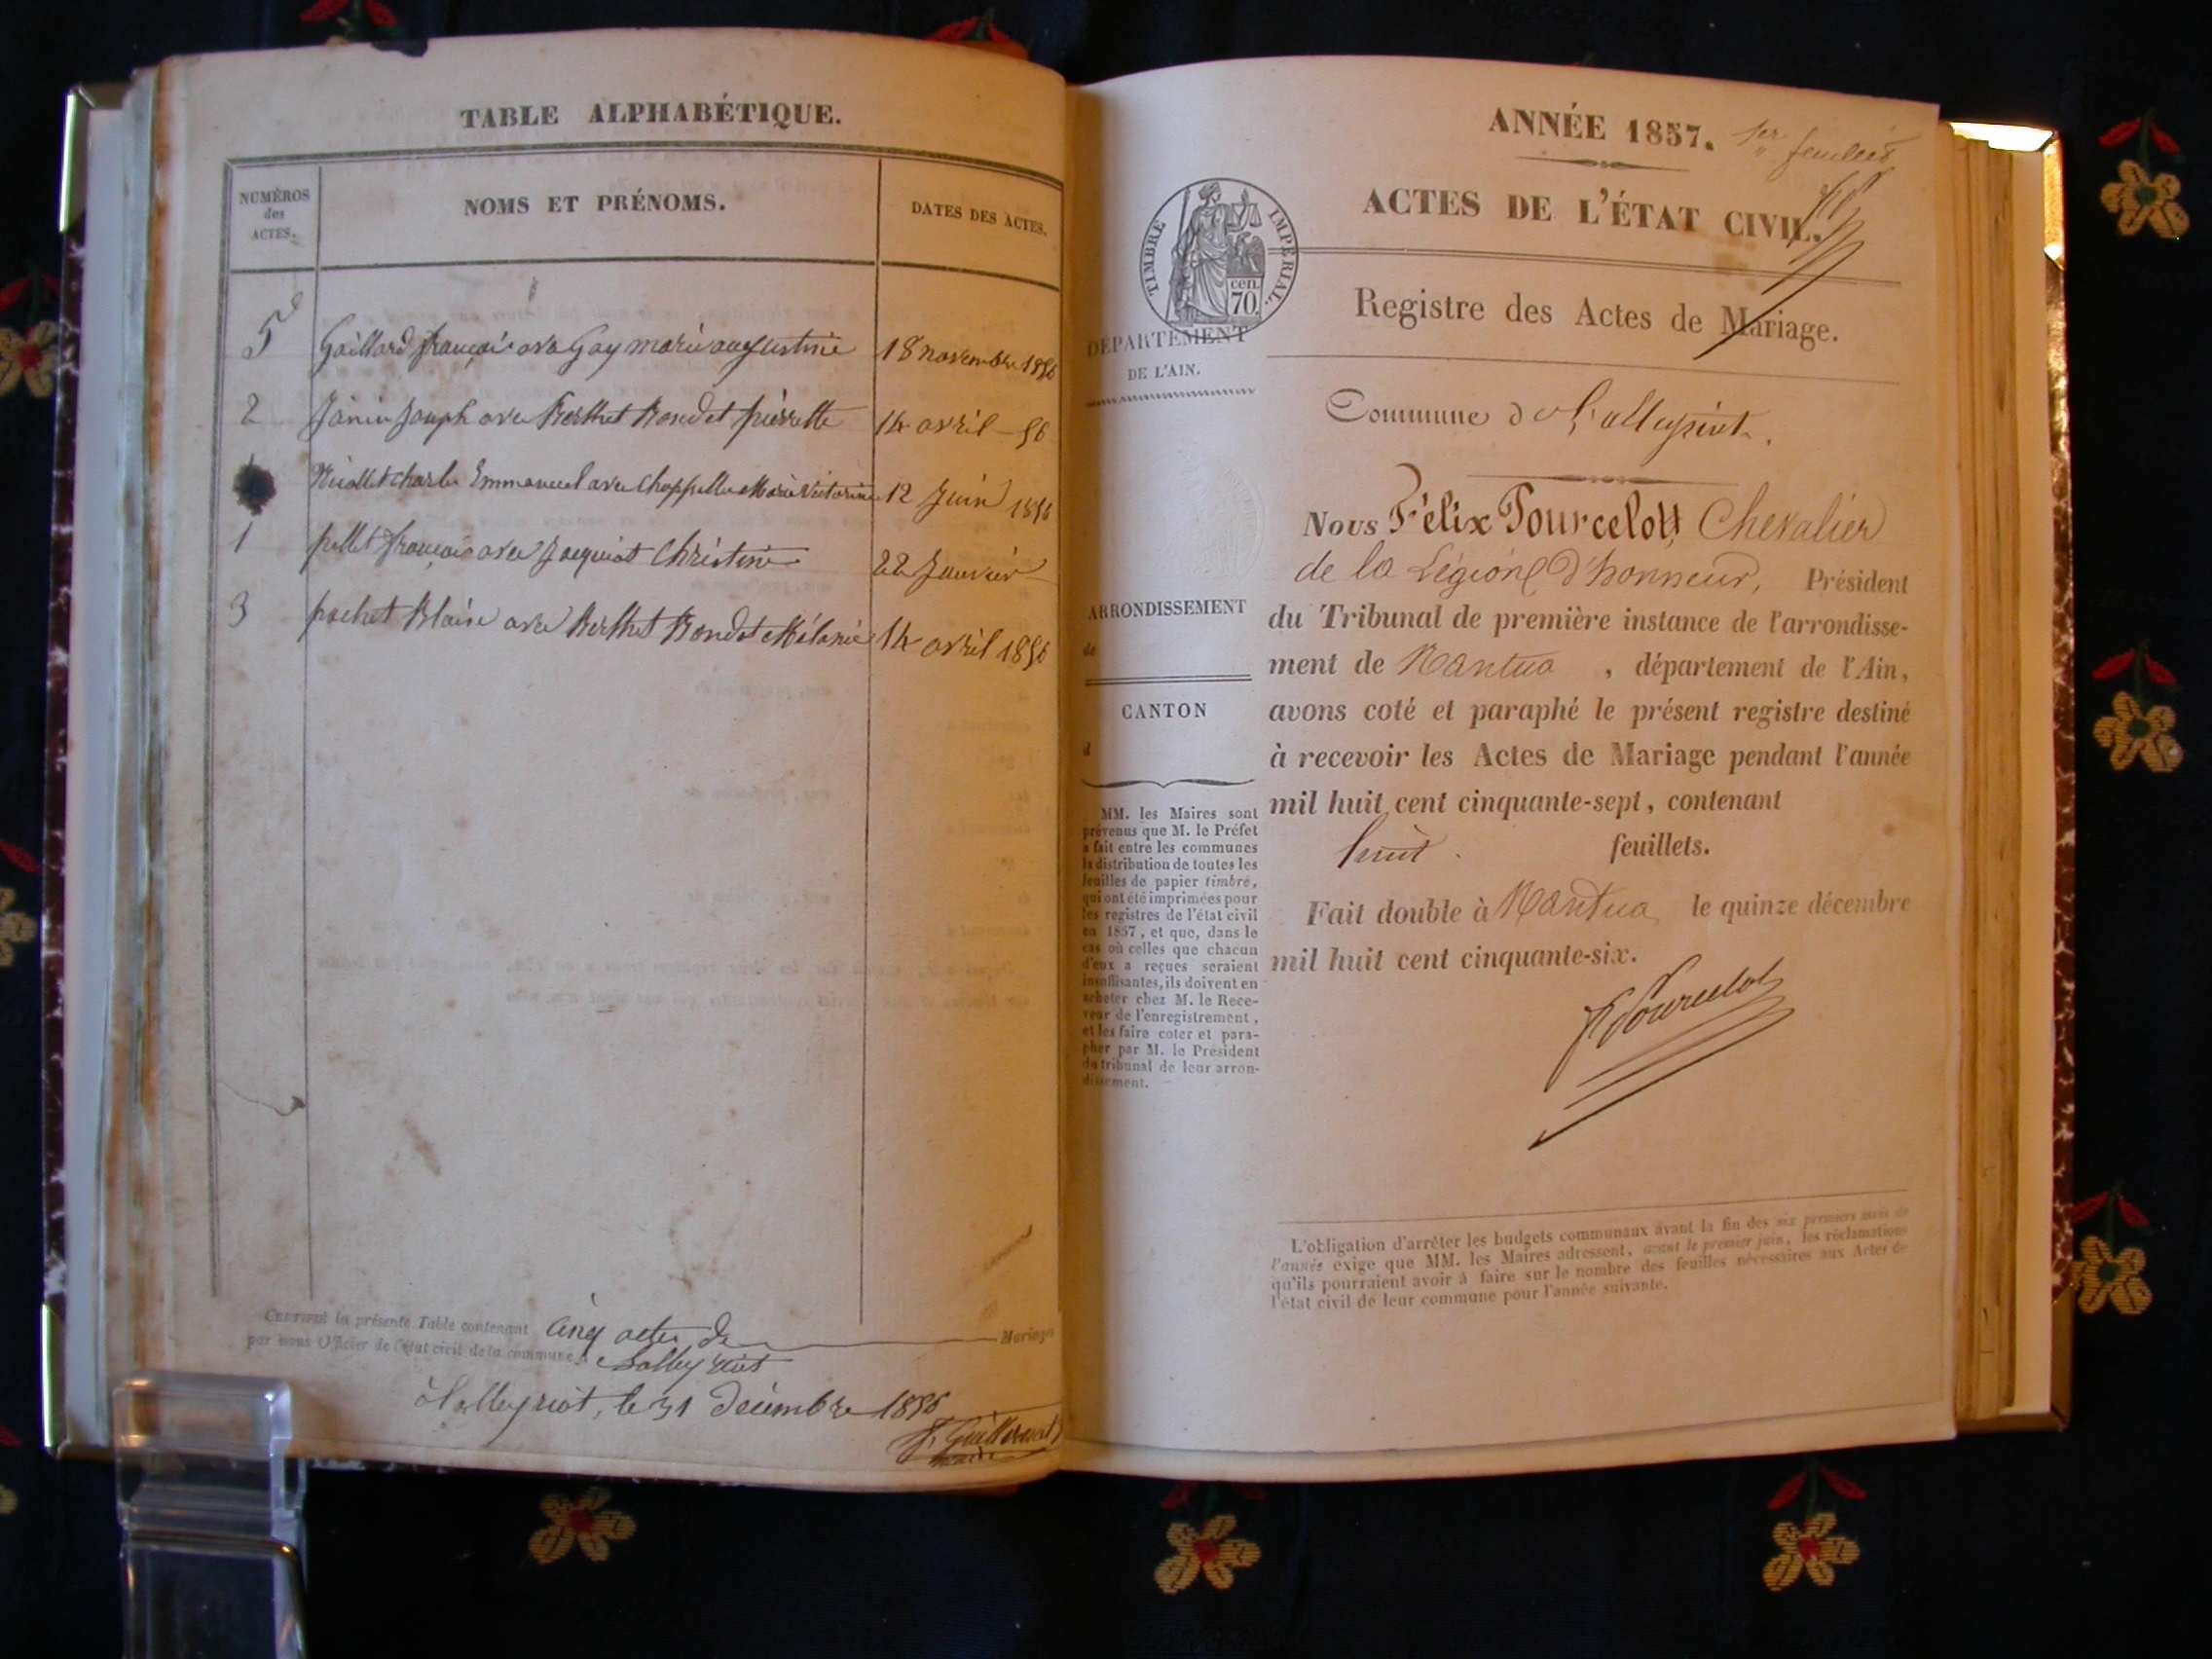 TABLE ALPHABÉTIQUE.
NUMÉROS
des
ACTES.
NOMS ET PRÉNOMS.
DATES DES ACTES.
5 Gaillard françois avec Gay marie augustine 18 novembre 1856
2 Janin Joseph avec Berthet Bondet pierrette 14 avril - 56
Nicollet charles Emmanuel avec Chappellu Marie Victorine 12 Juin 1856
1 pellet françois avec Jacquiot Christine 22 Janvier
3 pochet Blaise avec Berthet Bondet Mélanie 14 avril 1856
CERTIFIÉ la présente Table contenant Cinq actes de Mariages
par nous Officier de l'état civil de la commune de Lalleyriat
à Lalleyriat, le 31 Décembre 1856
maire
ANNÉE 1857. 1er feuillet
ACTES DE L'ÉTAT CIVIL.
TIMBRE IMPÉRIAL.
cen.
70.
Registre des Actes de Mariage.
DÉPARTEMENT
DE L'AIN.
Commune de Lalleyriat.
Nous Félix Pourcelot, Chevalier
de la Légion d'honneur, Président
du Tribunal de première instance de l'arrondisse-
ment de Nantua, département de l'Ain,
avons coté et paraphé le présent registre destiné
à recevoir les Actes de Mariage pendant l'année
mil huit cent cinquante-sept, contenant
huit feuillets.
Fait double à Nantua le quinze décembre
mil huit cent cinquante-six.
Pourcelot
ARRONDISSEMENT
de
CANTON
d
MM. les Maires sont
prévenus que M. le Préfet
a fait entre les communes
la distribution de toutes les
feuilles de papier timbré,
qui ont été imprimées pour
les registres de l'état civil
en 1857, et que, dans le
cas où celles que chacun
d'eux a reçues seraient
insuffisantes, ils doivent en
acheter chez M. le Rece-
veur de l'enregistrement,
et les faire coter et para-
pher par M. le Président
du tribunal de leur arron-
dissement.
L'obligation d'arrêter les budgets communaux avant la fin des six premiers mois de
l'année exige que MM. les Maires adressent, avant le premier juin, les réclamations
qu'ils pourraient avoir à faire sur le nombre des feuilles nécessaires aux Actes de
l'état civil de leur commune pour l'année suivante.